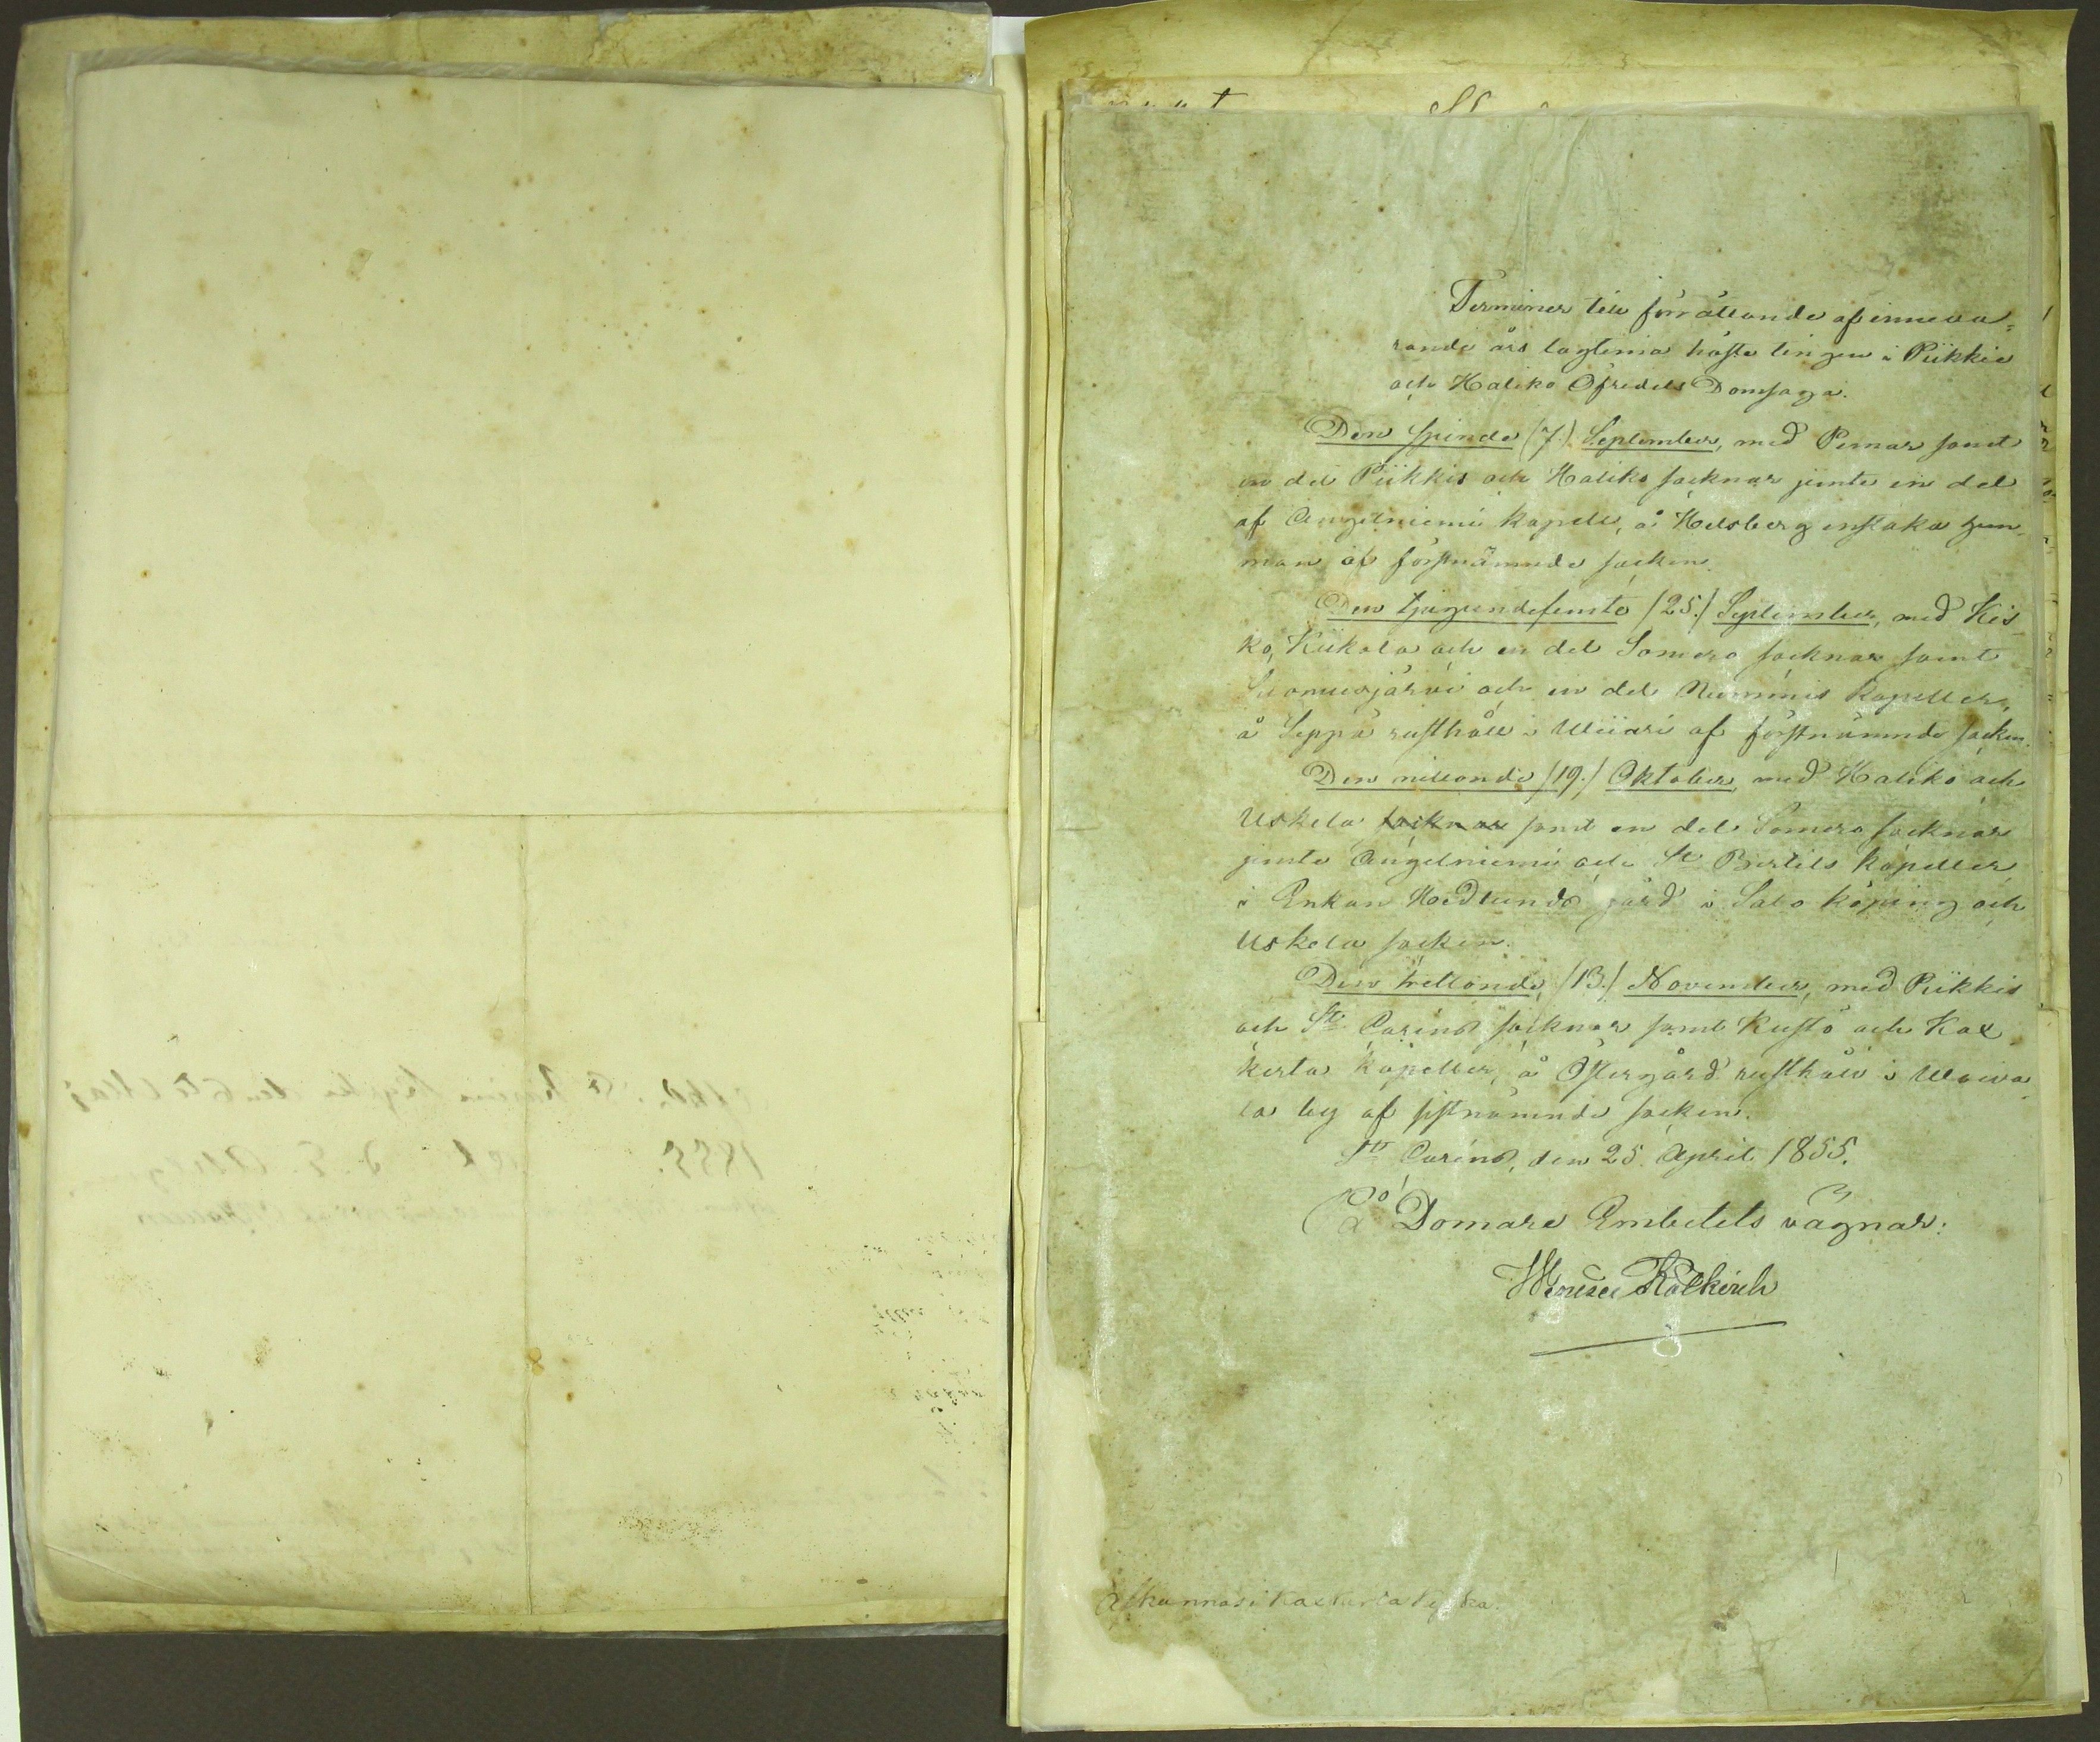 Terminer till förrättande af inneva=
rande års lagtima höste tingen i Piikkie
och Haliko Öfredels Domsaga.
Den sjunde (7.) September, med Pemar samt
en del Piikkis och Haliko socknar jemte en del
af Angelniemi kapell, å Helsberg enstaka hem-
man af förstnämnde socken.
Den tjugundefemte (25.) September, med Kis
ko, Kiikala och en del Somero socknar samt
Suomusjärvi och en del Nummis kapeller,
å Seppä rusthåll i Wiiari af förstnämnde socken.
Den nittonde (19.) Oktober, med Haliko och
Uskela socknar samt en del Somero socknar
jemte Angelniemi och St Bertils kapeller,
i Enkan Hedlunds gård i Salo köping och
Uskela socken.
Den trettonde (13.) November, med Piikkis
och St Carins socknar samt Kustö och Kax
kerta kapeller, å Östergård rusthåll i Waiva
la by af sistnämnde socken.
St Carins, den 25 April 1855.
På Domare Embetets vägnar:
Rålkirch
i Kakskerta kyrka.